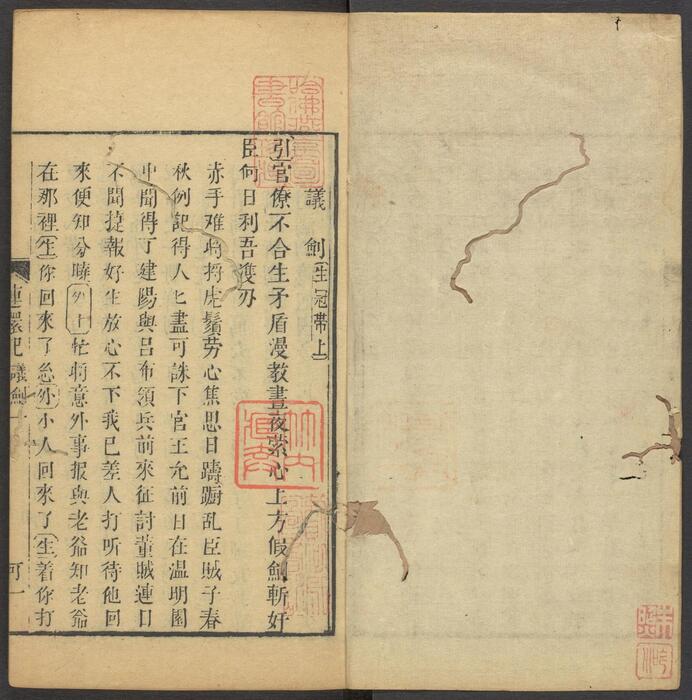 議劍(生冠帶上)
引官僚不合生矛盾漫教晝夜縈心上方假劍斬奸
臣何日利吾灉刃
赤手难將捋虎鬚劳心焦思日躊蹰乱臣贼子春
秋例記得人匕盡可誅下官王允前日在温明園
中聞得丁建陽與吕布領兵前來征討董賊連日
不聞捷報好生放心不下我已差人打听待他回
來便知分曉(外上)忙將意外事报與老爺知老爺
在那裡(生)你回來了怎(外)小人回來了(生)着你打
連環記 議劍 一 可一